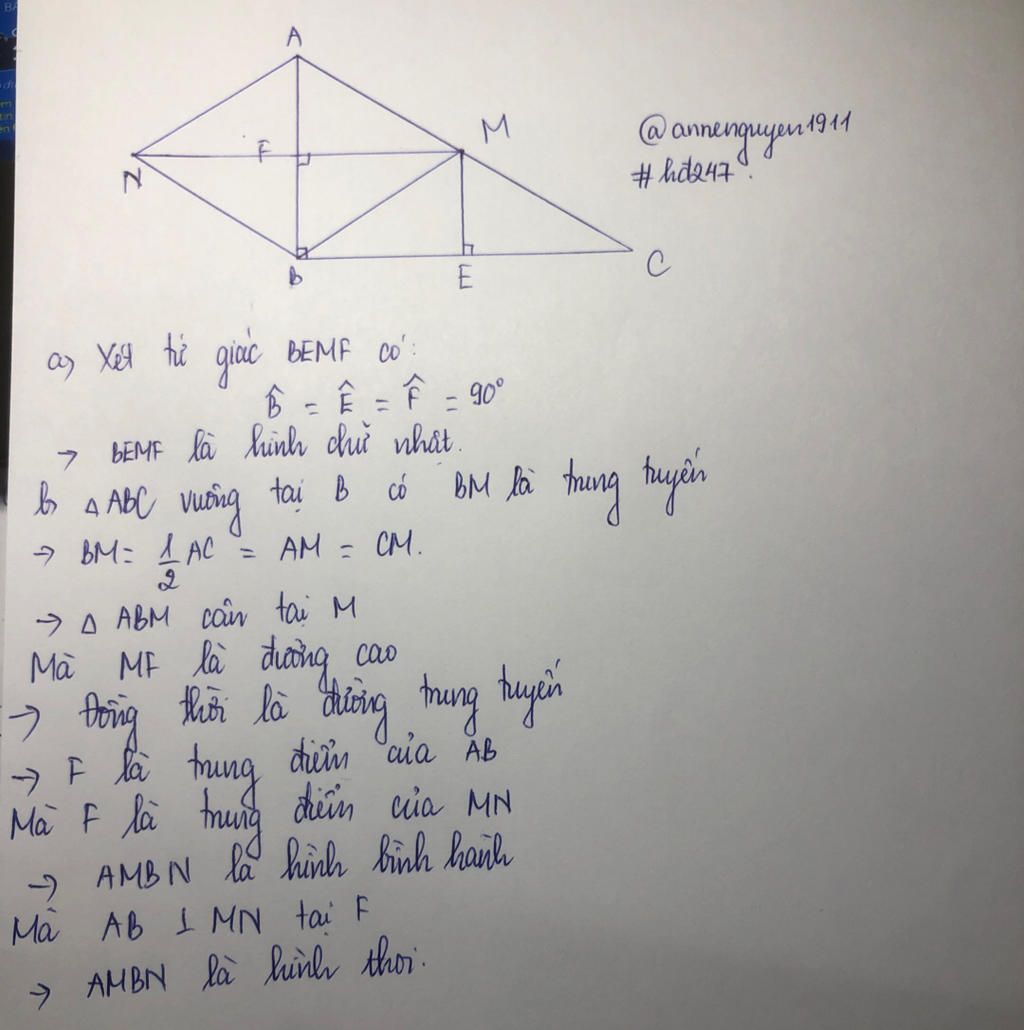 A
M
@annenguyen1911
F
#hđ247.
N
B
E
C
a, Xét tứ giác BEMF có:
B̂ = Ê = F̂ = 90°
→ BEMF là hình chữ nhật.
b, △ABC vuông tại B có BM là trung tuyến
→ BM = 1/2 AC = AM = CM.
→ △ ABM cân tại M
Mà MF là đường cao
→ Đồng thời là đường trung tuyến
→ F là trung điểm của AB
Mà F là trung điểm của MN
→ AMBN là hình bình hành
Mà AB ⊥ MN tại F
→ AMBN là hình thoi.